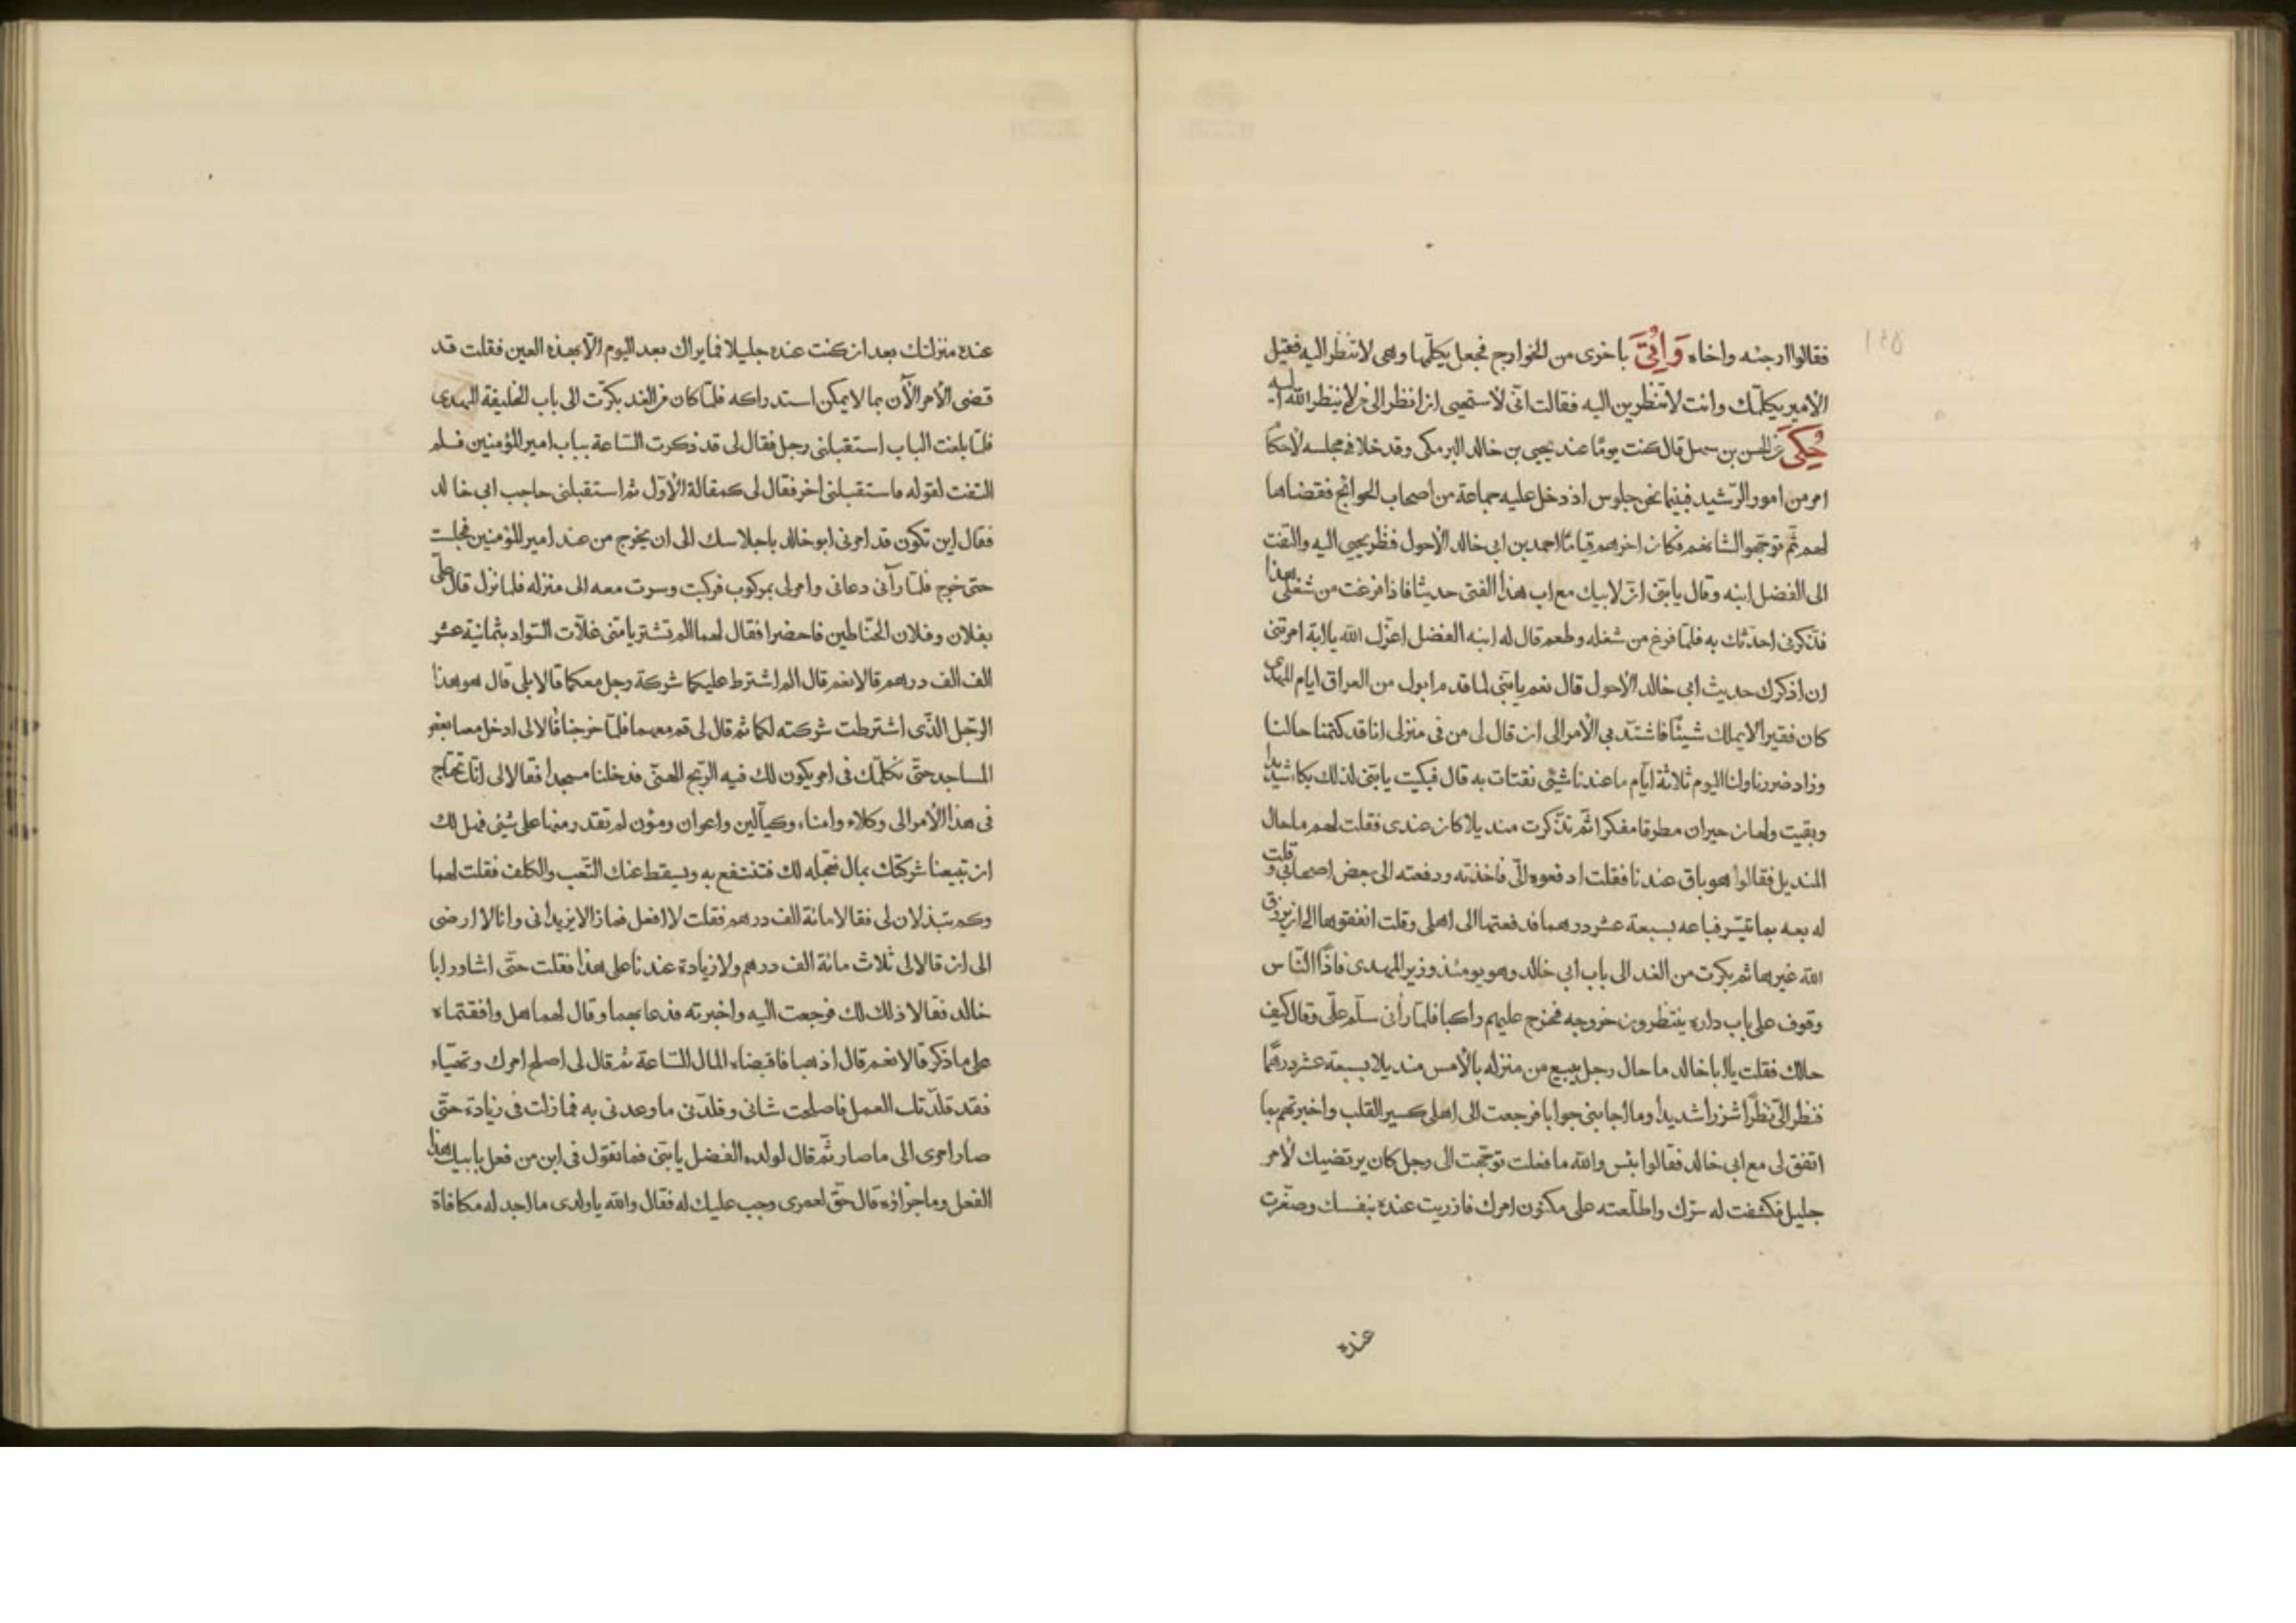 ١٤٥
فقالوا ارجئه واخاه وَاُتِيَ باخرى من الخوارج فجعل يكلّمها وهى لا تنظر اليه فقيل
الأمير يكلّمك وانت لا تنظرين اليه فقالت انّى لأستحيى ان انظر الى من لا ينظر الله اليه
حُكِىَ عن الحسن بن سهل قال كنت يومًا عند يحيى بن خالد البرمكى وقد خلا فى مجلسه لأحكام
امر من امور الرّشيد فبينما نحن جلوس اذ دخل عليه جماعة من اصحاب الحوائج فقضاها
لهم ثمّ توجّهوا لشانهم فكان اخرهم قيامًا احمد بن ابى خالد الأحول فنظر يحيى اليه والتفت
الى الفضل ابنه وقال يا بنى انّ لابيك مع اب هذا الفتى حديثا فاذا فرغت من شغلى هذا
فذكرنى احدّثك به فلمّا فرغ من شغله وطعم قال له ابنه الفضل اعزّك الله يا ابة امرتنى
ان اذكرك حديث ابى خالد الأحول قال نعم يا بنى لما قدم ابوك من العراق ايام المهدى
كان فقيرا لا يملك شيئًا فاشتدّ بى الأمر الى ان قال لى من فى منزلى انا قد كتمنا حالنا
وزاد ضررنا ولنا اليوم ثلاثة ايّام ما عندنا شئى نقتات به قال فبكيت يا بنى لذلك بكاء شديدا
وبقيت ولهان حيران مطرقا مفكرا ثم تذكرت منديلا كان عندى فقلت لهم ما حال
المنديل فقالوا هو باق عندنا فقلت ادفعوه الىّ فاخذته ودفعته الى بعض اصحابى وقلت
له بعه بما تيسّر فباعه بسبعة عشر درهما فدفعتها الى اهلى وقلت انفقوها الى ان يرزق
الله غيرها ثم بكرت من الغد الى باب ابى خالد وهو يومئذ وزير المهدى فاذا النّاس
وقوف على باب داره ينتظرون خروجه فخرج عليهم راكبا فلمّا رأنى سلّم علىّ وقال كيف
حالك فقلت يا ابا خالد ما حال رجل يبيع من منزله بالأمس منديلا بسبعة عشر درهمًا
فنظر الىّ نظرًا شزرا شديدا وما اجابنى جوابا فرجعت الى اهلى كسير القلب واخبرتهم بما
اتفق لى مع ابى خالد فقالوا بئس والله ما فعلت توجّهت الى رجل كان يرتضيك لأمر
جليل فكشفت له سرّك واطلعته على مكنون امرك فازريت عنده بنفسك وصغّرت
عنده
عنده منزلتك بعد ان كنت عنده جليلا فما يراك بعد اليوم الّا بهذه العين فقلت قد
قضى الأمر الآن بما لا يمكن استدراكه فلمّا كان من الغد بكرت الى باب الخليفة المهدى
فلمّا بلغت الباب استقبلنى رجل فقال لى قد ذكرت السّاعة بباب امير المؤمنين فلم
التفت لقوله فاستقبلنى اخر فقال لى كمقالة الأوّل ثم استقبلنى حاجب ابى خالد
فقال اين تكون قد امرنى ابو خالد باجلاسك الى ان يخرج من عند امير المؤمنين فجلست
حتى خرج فلمّا رآنى دعانى وامر لى بمركوب فركبت وسرت معه الى منزله فلما نزل قال علىّ
بفلان وفلان الحنّاطين فاحضرا فقال لهما الم تشتريا منى غلّات السّواد بثمانية عشر
الف الف درهم قالا نعم قال الم اشترط عليكما شركة رجل معكما قالا بلى قال هو هذا
الرّجل الّذى اشترطت شركته لكما ثم قال لى قم معهما فلمّا خرجنا قالا لى ادخل معنا بعض
المساجد حتّى نكلّمك فى امر يكون لك فيه الرّبح الهنىّ فدخلنا مسجدا فقالا لى انّك تحتاج
فى هذا الأمر الى وكلاء وامناء وكيّالين واعوان ومؤن لم تقدر منها على شيئ فهل لك
ان تبيعنا شركتك بمال نعجّله لك فتنتفع به ويسقط عنك التّعب والكلف فقلت لهما
وكم تبذلان لى فقالا مائة الف درهم فقلت لا افعل فما زالا يزيدانى وانا لا ارضى
الى ان قالا لى ثلاث مائة الف درهم ولا زيادة عندنا على هذا فقلت حتّى اشاور ابا
خالد فقالا ذلك لك فرجعت اليه واخبرته فدعا بهما وقال لهما هل وافقتماه
على ما ذكر قالا نعم قال اذهبا فاقبضاه المال السّاعة ثم قال لى اصلح امرك وتهيّاء
فقد قلّدتك العمل فاصلحت شانى وقلدّنى ما وعدنى به فما زلت فى زيادة حتّى
صار امرى الى ما صار ثمّ قال لولده الفضل يا بنى فما تقول فى ابن من فعل بابيك هذا
الفعل وما جزاؤه قال حقّ لعمرى وجب عليك له فقال والله يا ولدى ما اجد له مكافاة